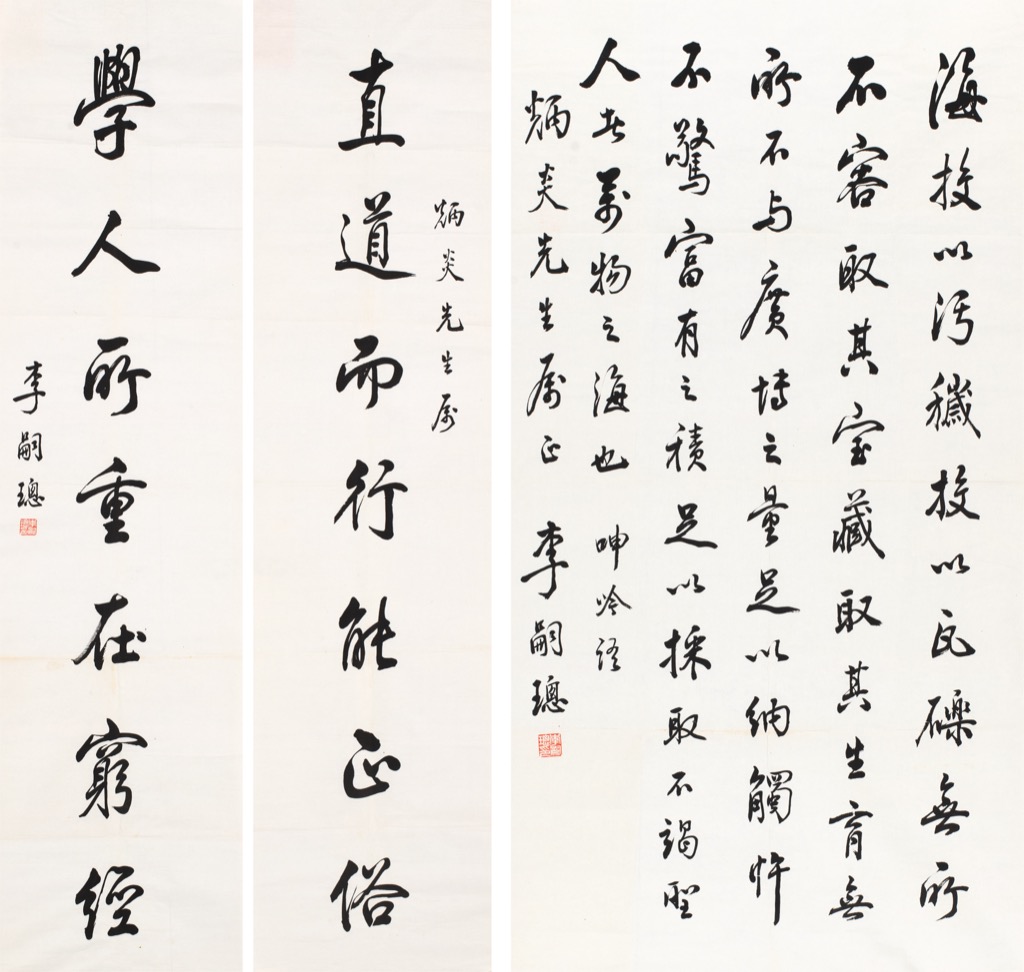 海投以污穢投以瓦礫無所
不容取其宝藏取其生育無
所不与廣博之量足以納觸忤而
不驚富有之積足以採取不竭聖
人者萬物之海也 呻吟語
炳炎先生属正 李嗣璁
炳炎先生属
直道而行能正俗
學人所重在窮經
李嗣璁